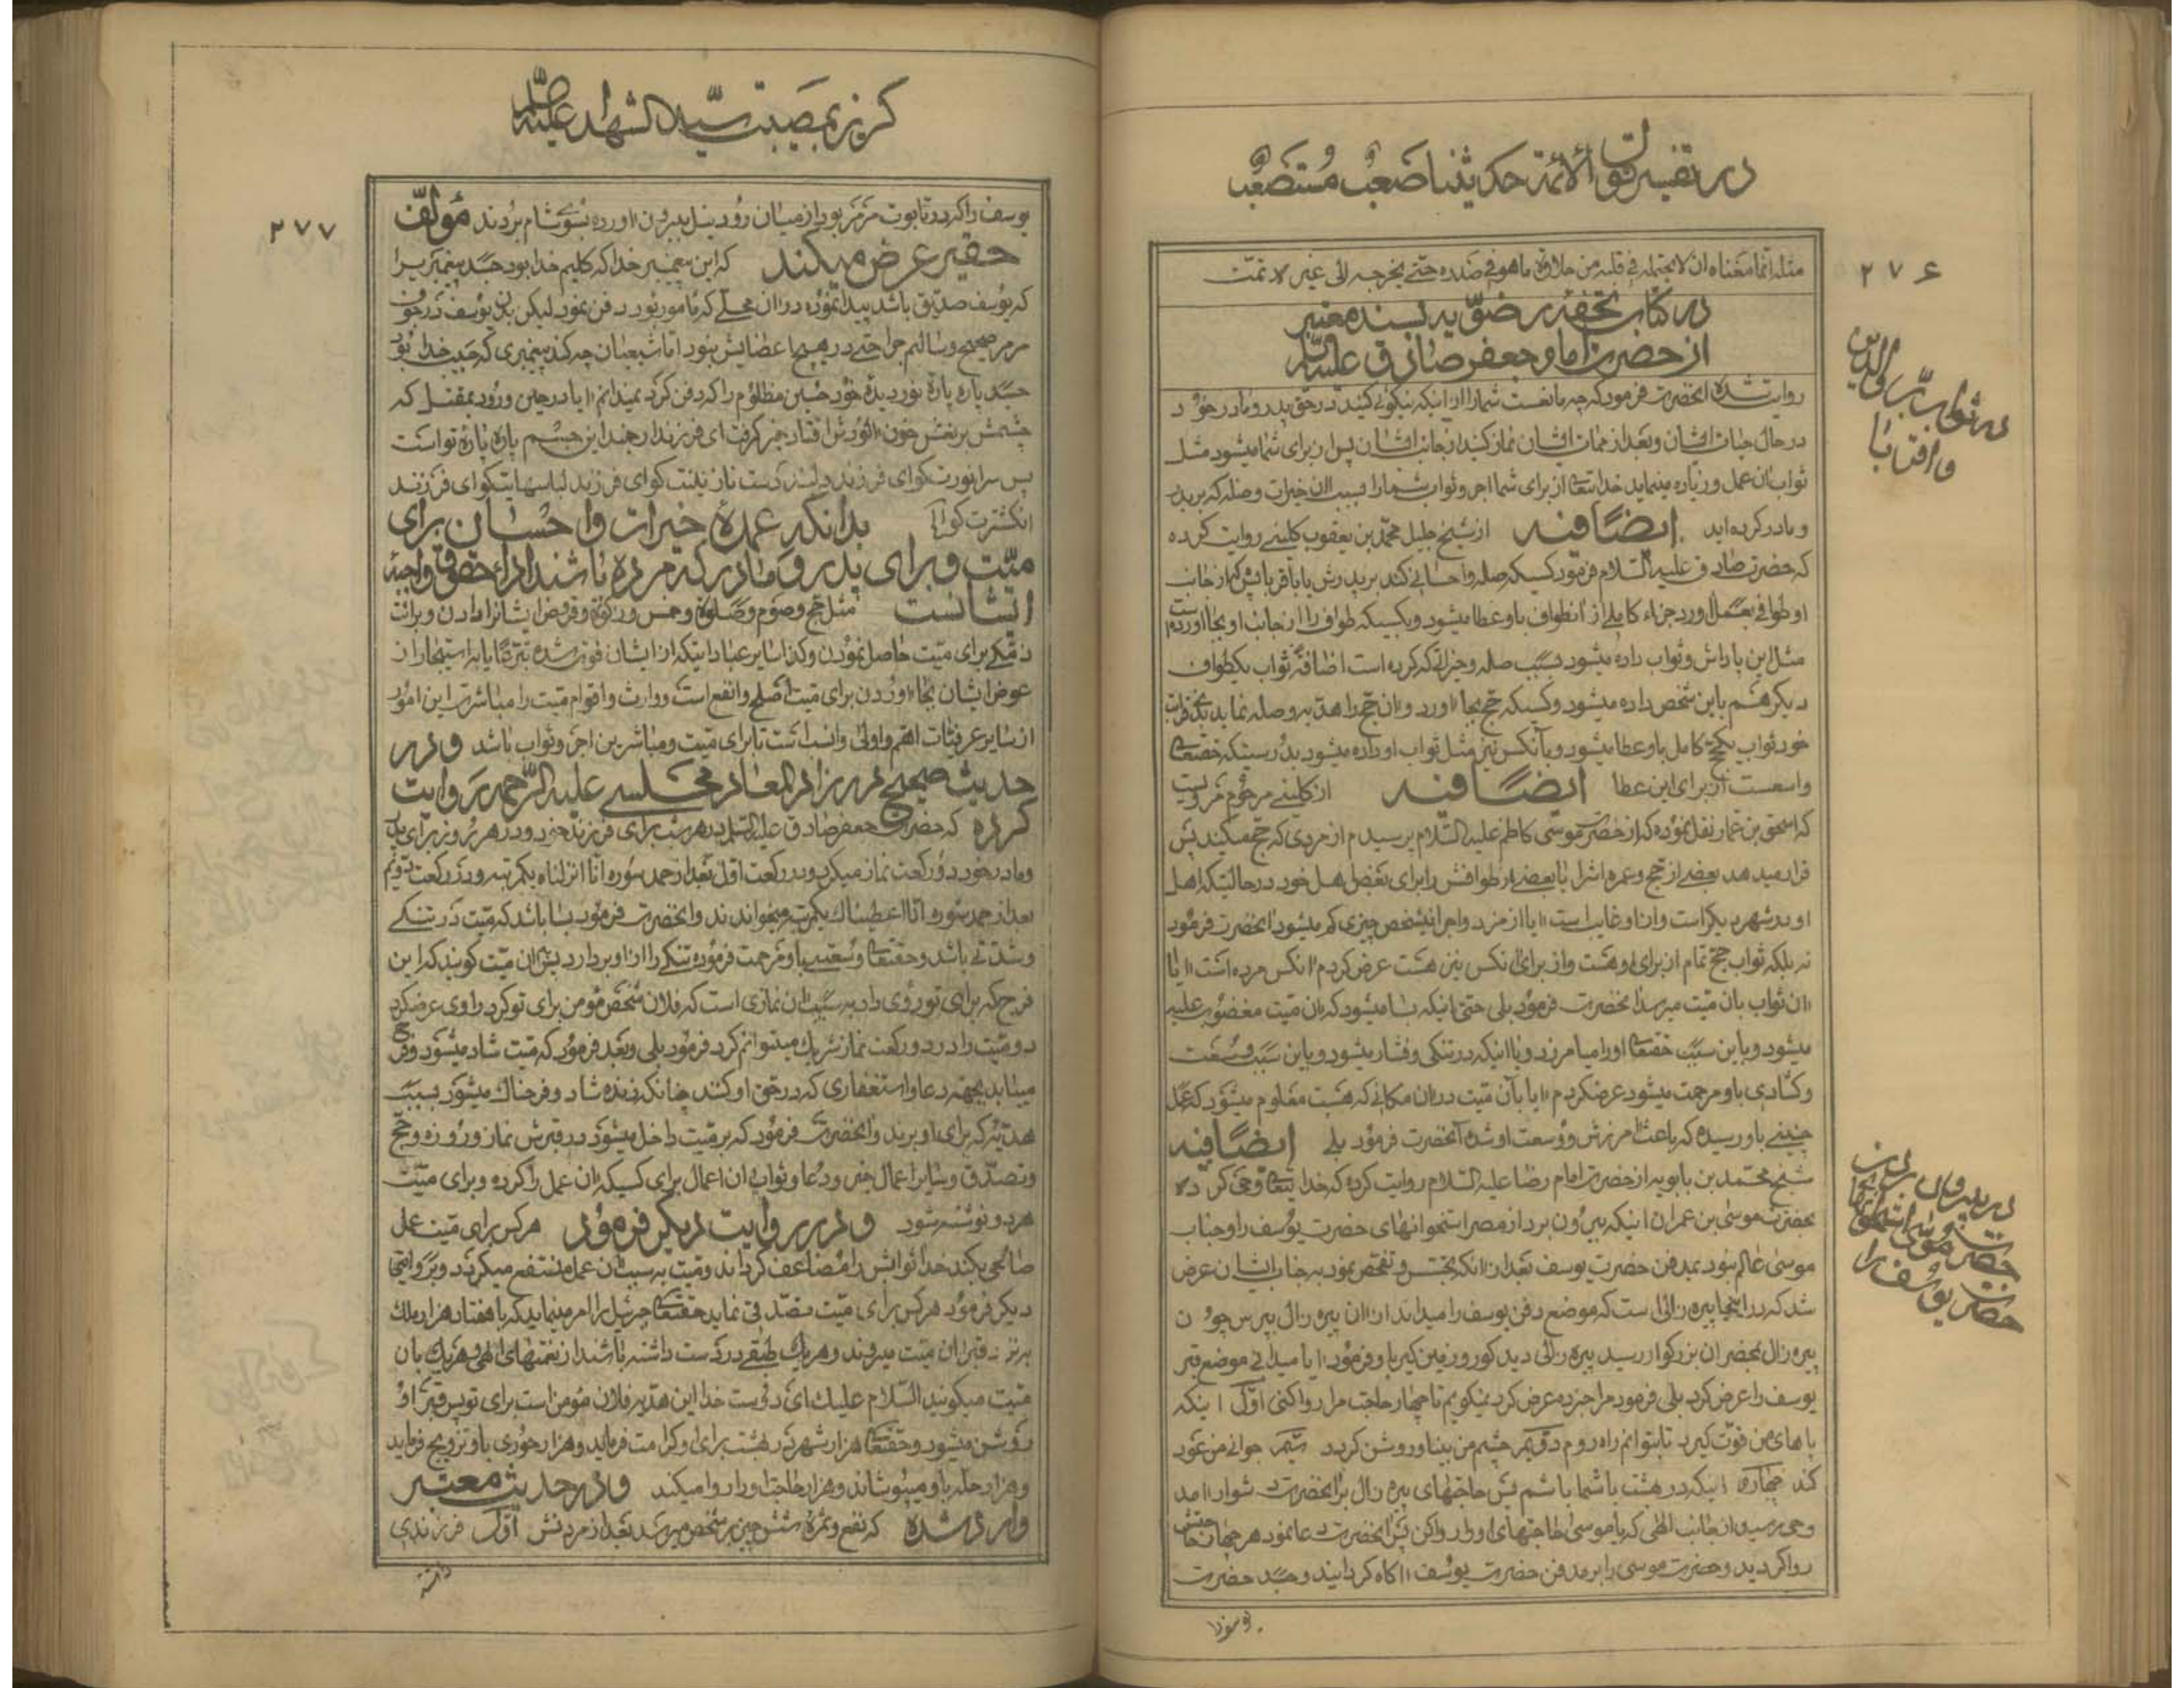 در تفسیر قول الائمة حدیثنا صعب مستصعب
۲۷۶
مثله انما معناه ان لا یحتمله فی قلبه من حلاوة ما هو فی صدره حتی یخرجه الی غیره تمت
در کتاب تحفه رضویه بسند معتبر
از حضرت امام جعفر صادق علیه السلام
روایت شده آنحضرت فرمود که چه مانعست شما را از اینکه نیکوئی کنید در حق پدر و مادر خود
در حال حیات ایشان و بعد از ممات ایشان نماز کنید از جانب ایشان پس از برای شما میشود مثل
ثواب آن عمل و زیاده مینماید خدایتعالی از برای شما اجر و ثواب شما را بسبب آن خیرات وصله که بر پدر
و مادر کرده اید ایضا فیه از شیخ جلیل محمد بن یعقوب کلینی روایت کرده
که حضرت صادق علیه السلام فرمود کسیکه صله و احسانی کند بر پدرش یا باقربایش که از جانب
او طوافی بعمل آورد جزاء کاملی از آنطواف باو عطا میشود و بکسیکه طواف را از جانب او بجا آورده است
مثل این پاداش و ثواب داده میشود بسبب صله و خیراتیکه کرده است اضافه ثواب یکطواف
دیگر هم باین شخص داده میشود و کسیکه حج بجا آورد و آن حج را هدیه وصله نماید
خود ثواب یکحج کامل باو عطا میشود و بآنکس نیز مثل ثواب او داده میشود بدرستیکه حقتعالی
واسعست از برای این عطا ایضا فیه از کلینی مرحوم مرویست
که اسحق بن عمار نقل نموده که از حضرت موسی کاظم علیه السلام پرسیدم از مردی که حج میکند پس
قرار میدهد بعضی از حج و عمره اش را یا بعضی از طوافش را برای بعض اهل خود در حالتیکه اهل
او در شهر دیگر است و از او غایب است آیا از مزد و اجر این شخص چیزی کم میشود آنحضرت فرمود
نه بلکه ثواب حج تمام از برای او هست و از برای آنکس نیز هست عرض کردم آنکس مرده است آیا
آن ثواب بان میت میرسد آنحضرت فرمود بلی حتی اینکه بسا میشود که آن میت مغضوب علیه
میشود و باین سبب حقتعالی او را میامرزد و یا اینکه در تنگی و فشار میشود و باین سبب وسعت
و گشادی باو مرحمت میشود عرضکردم آیا بآن میت در آن مکانی که هست معلوم میشود که عمل
چنینی باو رسیده که باعث آمرزش و وسعت او شده آنحضرت فرمود بلی ایضا فیه
شیخ محمد بن بابویه از حضرت امام رضا علیه السلام روایت کرده که خدایتعالی وحی کرده
بحضرت موسی بن عمران اینکه بیرون برد از مصر استخوانهای حضرت یوسف را و جناب
موسی عالم نبود بمدفن حضرت یوسف بعد از آنکه تجسس و تفحص نمود بجناب ایشان عرض
شد که در اینجا پیره زالی است که موضع دفن یوسف را میداند از آن پیره زال بپرس چون
پیره زال بحضر آن بزرگوار رسید پیره زالی دید کور و زمین گیر باو فرمود آیا میدانی موضع قبر
یوسف را عرض کرد بلی فرمود مرا خبر ده عرض کرد نمیگویم تا چهار حاجت مرا روا کنی اول اینکه
پاهای من قوت گیرد تا بتوانم راه روم دویم چشم من بینا و روشن گردد سیم جوانی من عود
کند چهارم اینکه در بهشت با شما باشم پس حاجتهای پیره زال بر آنحضرت دشوار آمد
وحی رسید از جانب الهی که یا موسی حاجتهای او را روا کن پس آنحضرت دعا نمود هر چهار حاجتش
روا گردید و حضرت موسی را بر مدفن حضرت یوسف آگاه گردانید و جسد حضرت
یوسفرا
در ثواب بر والدین
و اقربا
حضرت موسی
حضرت یوسف را
گریز بمصیبت سید الشهداء علیه السلام
۲۷۷
یوسف را که در تابوت مرمر بود از میان رود نیل بیرون آورده بسوی شام بردند مؤلف
حقیر عرض میکند که این پیغمبر خدا که کلیم خدا بود جسد پیغمبریرا
که یوسف صدیق باشد پیدا نموده در آن محلی که مامور بود دفن نمود لیکن بدن یوسف در جوف
مرمر صحیح و سالم جراحتی در هیچ اعضایش نبود اما شیعیان چه کند پیغمبری که حبیب خدا بود
جسد پاره پاره نور دیده خود حسین مظلوم را که دفن کرد نمیدانم آیا در حین ورود بمقتل که
چشمش بر نعش خون آلودش افتاد جبر گرفت ای فرزند ارجمند این جسم پاره پاره تو است
پس سر انورت کو ای فرزند دلبند دست نازنینت کو ای فرزند لباسهایت کو ای فرزند
انگشترت کو بدانکه عمده خیرات و احسان برای
میت و برای پدر و مادر که مرده باشند اداء حقوق واجبه
ایشانست مثل حج و صوم و صلوة و خمس و زکوة و قروض ایشانرا دادن و برائت
ذمگی برای میت حاصل نمودن و کذا سایر عباداتیکه از ایشان فوت شده تبرعا یا به استیجار از
عوض ایشان بجا آوردن برای میت اصلح و انفع است و وارث و اقوام میت را مباشرت این امور
از سایر عرفیات اهم و اولی و انسب است تا برای میت و مباشرین اجر و ثواب باشد و در
حدیث صحیح در زاد المعاد مجلسی علیه الرحمه روایت
کرده که حضرت جعفر صادق علیه السلام در هر شب برای فرزند خود و در هر روز برای پدر
و مادر خود دو رکعت نماز میکرد و در رکعت اول بعد از حمد سوره انا انزلناه یکمرتبه و در رکعت دویم
بعد از حمد سوره انا اعطیناک یکمرتبه میخواندند و آنحضرت فرمود بسا باشد که میت در تنگی
و شدتی باشد و حقتعالی وسعتی باو مرحمت فرموده تنگی را از او بردارد پس بان میت گویند که این
فرج که برای تو روی داد بسبب آن نمازی است که فلان شخص مؤمن برای تو کرد راوی عرضکرد
دو میت را در دو رکعت نماز شریک میتوانم کرد فرمود بلی و بعد فرمود که میت شاد میشود و فرج
مییابد بجهة دعا و استغفاری که در حق او کنند چنانکه زنده شاد و فرحناک میشود بسبب
هدیه که برای او برند و آنحضرت فرمود که بر میت داخل میشود در قبرش نماز و روزه و حج
و تصدق و سایر اعمال خیر و دعا و ثواب آن اعمال برای کسیکه آن عمل را کرده و برای میت
هر دو نوشته شود و در روایت دیگر فرمود هر کس برای میت عمل
صالحی بکند خدا ثوابش را مضاعف گرداند و میت به سبب آن عمل منتفع میگردد و بروایتی
دیگر فرمود هر کس برای میت تصدقی نماید حقتعالی جبرئیل را امر مینماید که با هفتاد هزار ملک
بر نزد قبر آن میت میروند و هر یک طبقی در دست داشته باشند از نعمتهای الهی و هر یک بان
میت میگویند السلام علیک ای دوست خدا این هدیه فلان مؤمن است برای تو پس قبر او
روشن میشود و حقتعالی هزار شهر در بهشت برای او کرامت فرماید و هزار حوری باو تزویج فرماید
و هزار حله باو میپوشاند و هزار حاجت او را روا میکند و در حدیث معتبر
وارد شده که نفع و ثمره شش چیز بر شخص میرسد بعد از مردنش اول فرزندی